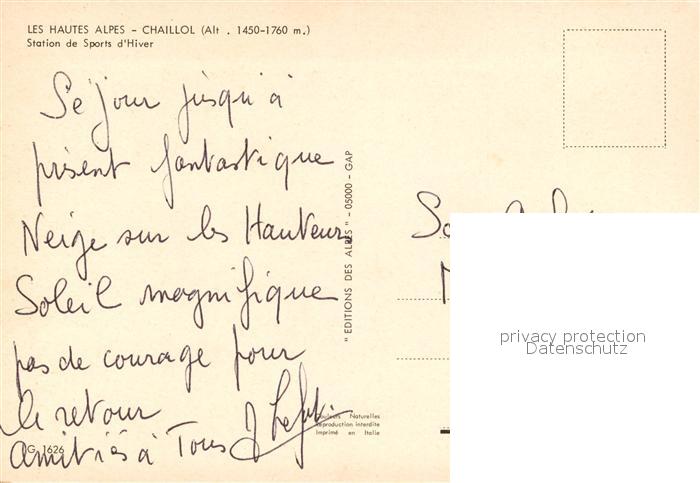 LES HAUTES ALPES - CHAILLOL (Alt . 1450-1760 m.)
Station de Sports d'Hiver
Séjour jusqu'à
présent fantastique
Neige sur les Hauteurs
Soleil magnifique
pas de courage pour
le retour
Amitiés à Tous
G. 1626
" EDITIONS DES ALPES " - 05000 - GAP
Couleurs Naturelles
Reproduction interdite
Imprimé en Italie
privacy protection
Datenschutz